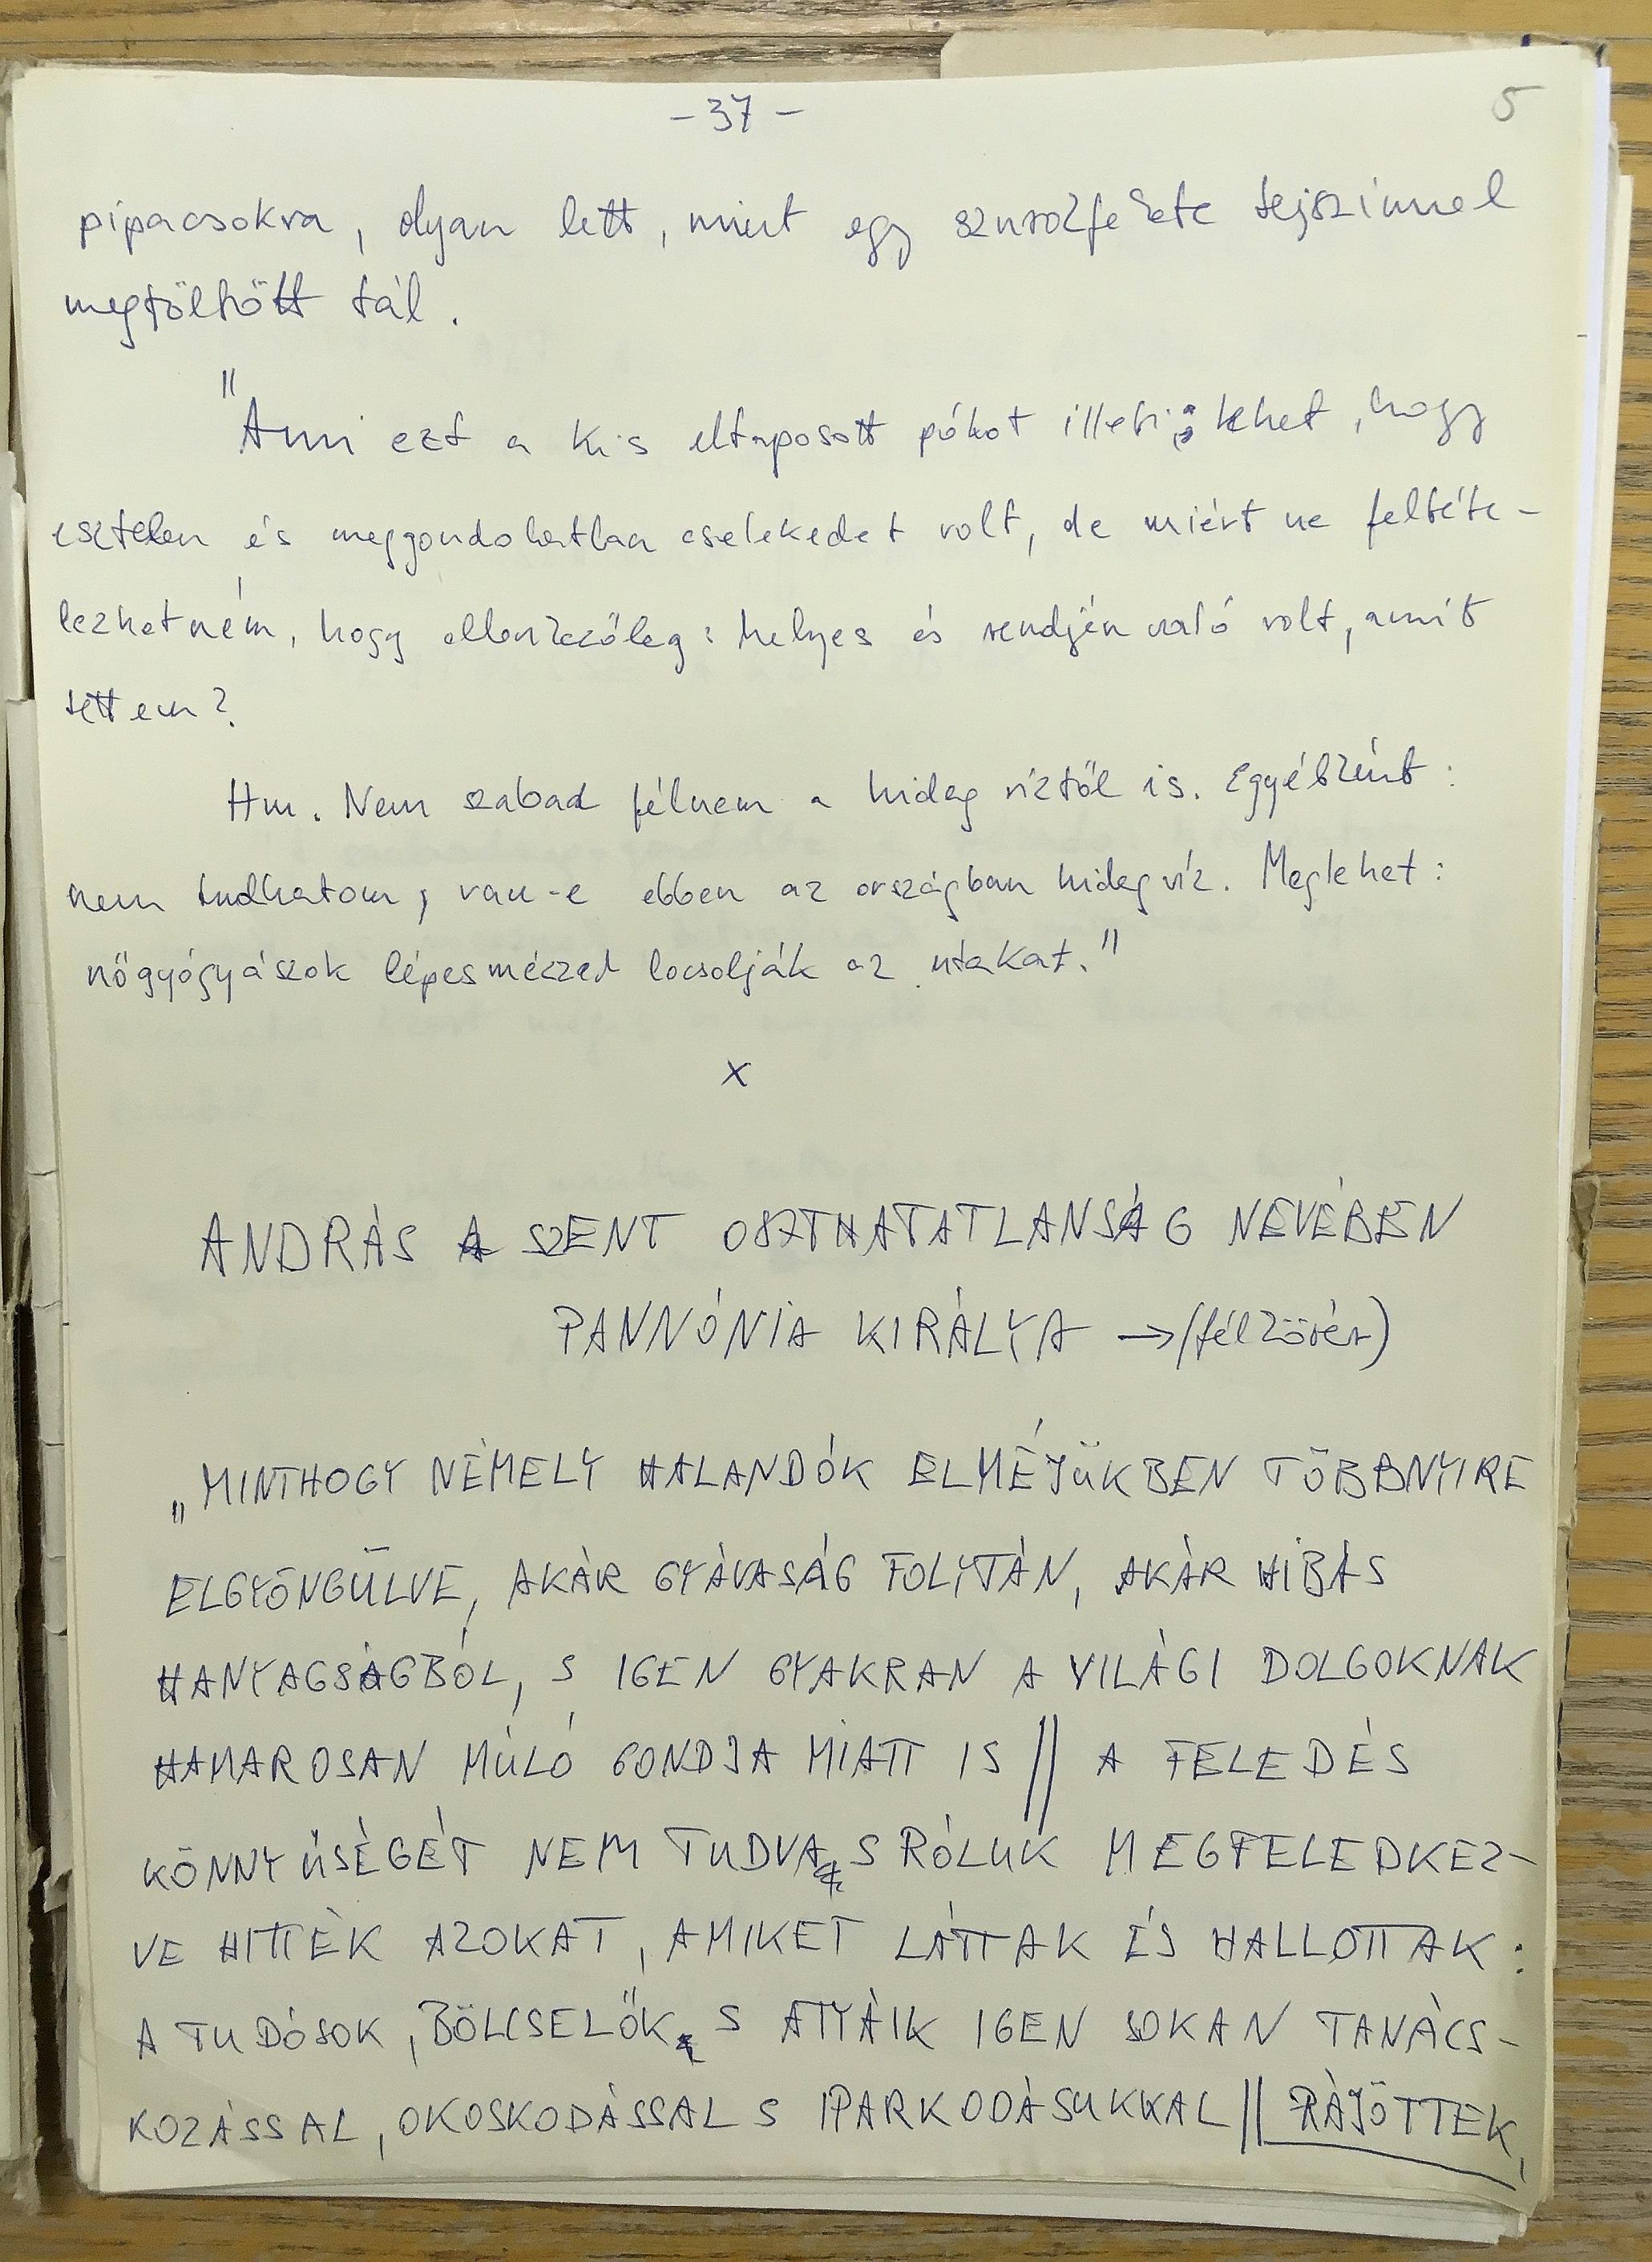 - 37 -
5
pipacsokra, olyan lett, mint egy szurokfekete tejszinnel
megtöltött tál.
"Ami ezt a kis eltaposott pókot illeti; lehet, hogy
esztelen és meggondolatlan cselekedet volt, de miért ne feltéte-
lezhetném, hogy ellenkezőleg: helyes és rendjén való volt, amit
tettem?
Hm. Nem szabad félnem a hideg víztől is. Egyébként:
nem tudhatom, van-e ebben az országban hideg víz. Meglehet:
nőgyógyászok lépesmézzel locsolják az utakat."
x
ANDRÁS A SZENT OSZTHATATLANSÁG NEVÉBEN
PANNÓNIA KIRÁLYA → (félkövér)
„MINTHOGY NÉMELY HALANDÓK ELMÉJÜKBEN TÖBBNYIRE
ELGYÖNGÜLVE, AKÁR GYÁVASÁG FOLYTÁN, AKÁR HIBÁS
HANYAGSÁGBÓL, S IGEN GYAKRAN A VILÁGI DOLGOKNAK
HAMAROSAN MÚLÓ GONDJA MIATT IS || A FELEDÉS
KÖNNYŰSÉGÉT NEM TUDVA S RÓLUK MEGFELEDKEZ-
VE HITTÉK AZOKAT, AMIKET LÁTTAK ÉS HALLOTTAK:
A TUDÓSOK, BÖLCSELŐK S ATYÁIK IGEN SOKAN TANÁCS-
KOZÁSSAL, OKOSKODÁSSAL S IPARKODÁSUKKAL || RÁJÖTTEK,